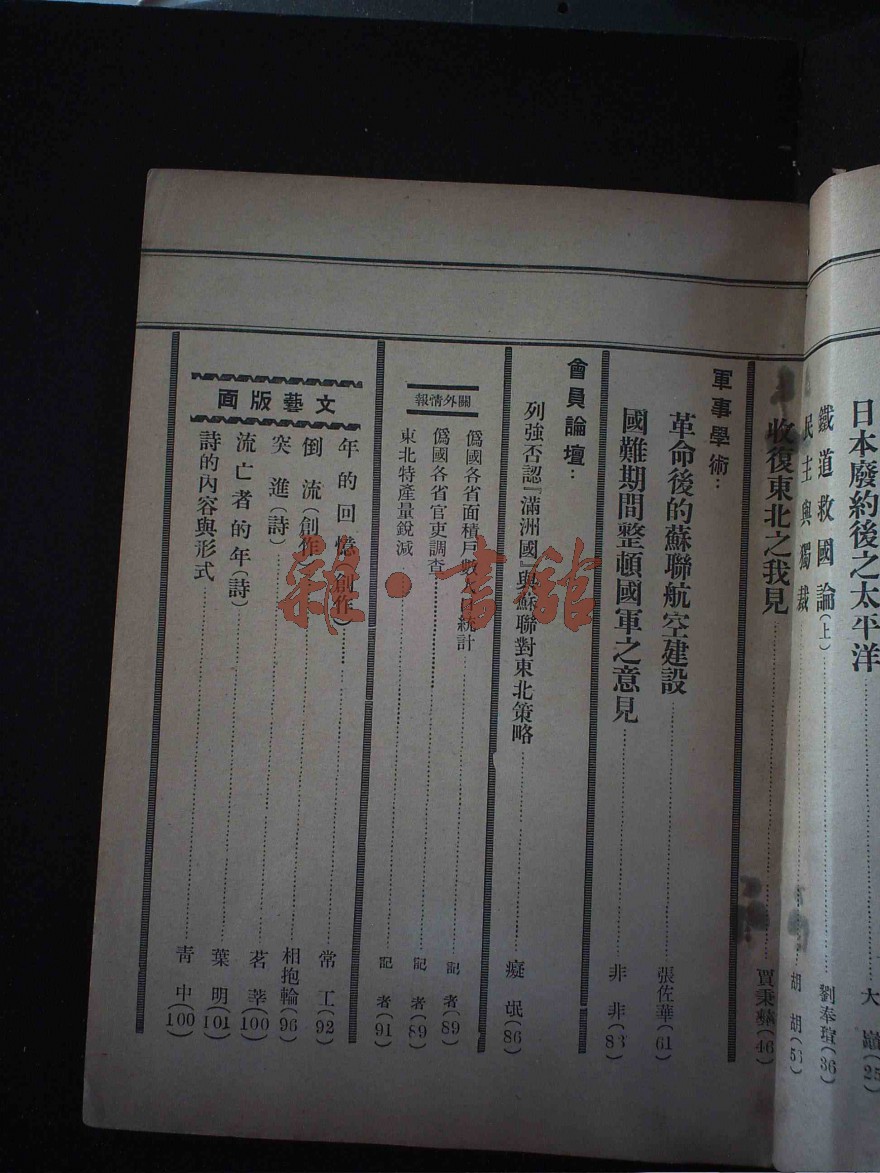 日本廢約後之太平洋……大 巓(25)
鐵道救國論(上)……劉奉瑄(36)
民主與獨裁……胡 胡(53)
收復東北之我見……賈秉彝(46)
軍事學術：
革命後的蘇聯航空建設……張佐華(61)
國難期間整頓國軍之意見……非 非(83)
會員論壇：
列強否認『滿洲國』與蘇聯對東北策略……癡 氓(86)
關外情報
僞國各省面積戶數人口統計……記 者(89)
僞國各省官吏調查……記 者(89)
東北特產量銳減……記 者(91)
文藝版面
年的回憶(創作)……常 工(92)
倒流(創作)……相抱輪(96)
突進(詩)……茗 莘(100)
流亡者的年(詩)……葉 明(101)
詩的內容與形式……青 中(100)
雜·書館